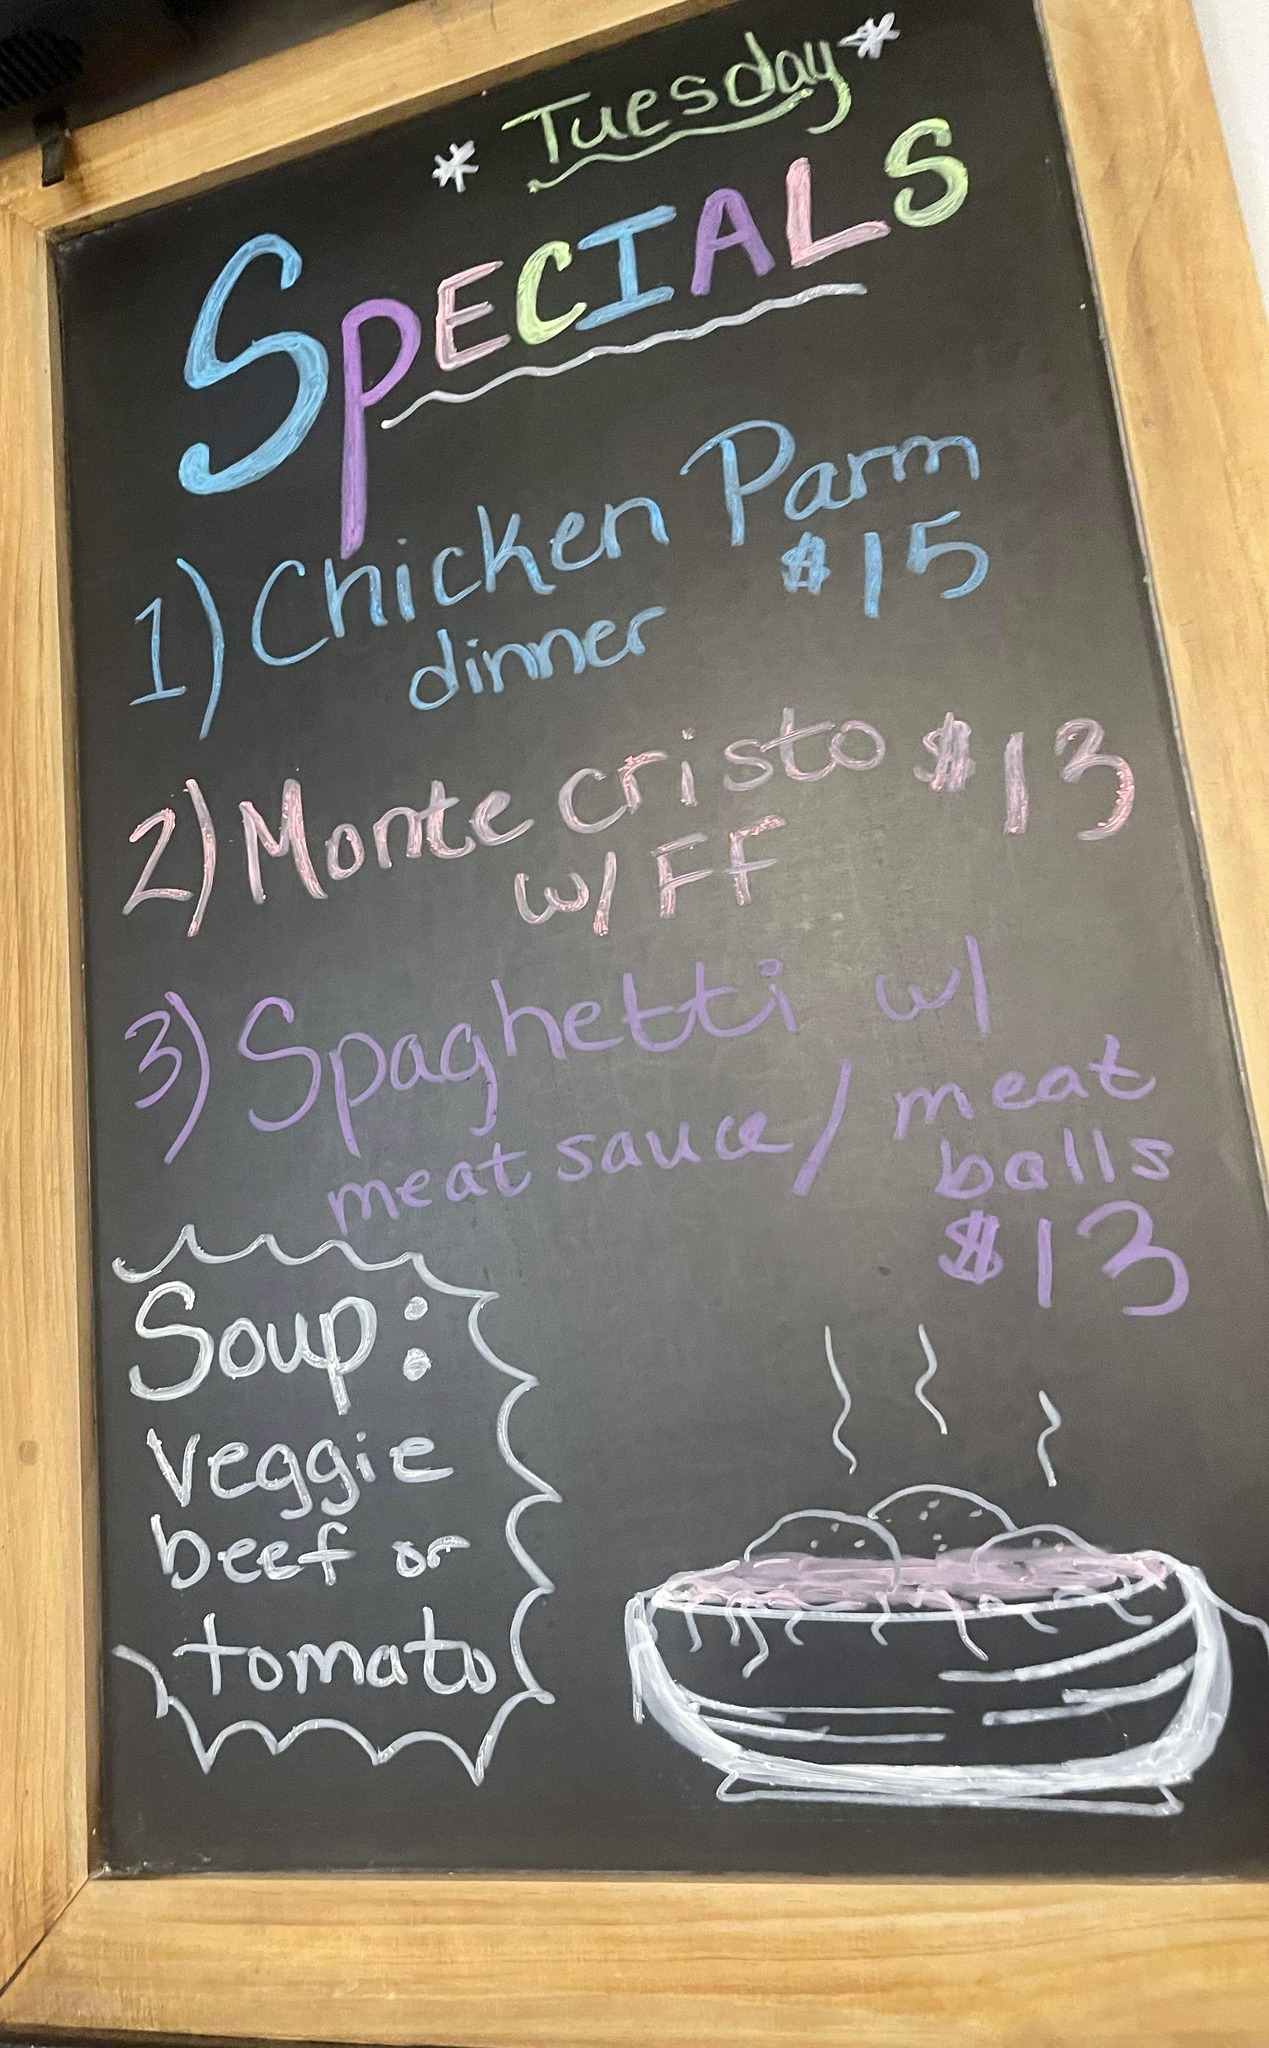 * Tuesday *
SPECIALS
1) Chicken Parm
dinner $15
2) Monte cristo $13
w/ FF
3) Spaghetti w/
meat sauce / meat
balls
$13
Soup:
Veggie
beef or
tomato